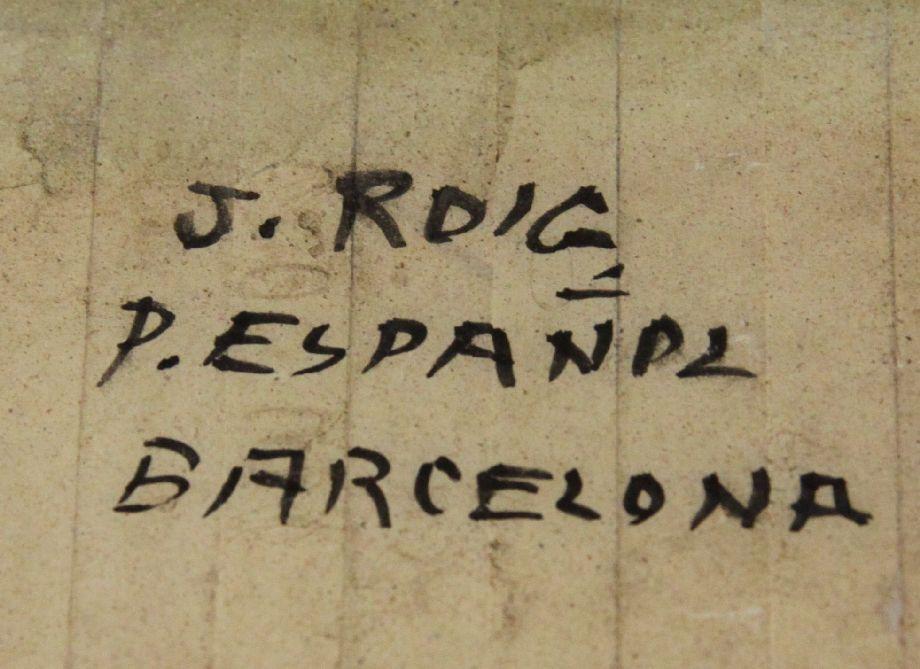 J. ROIG
P. ESPAÑOL
BARCELONA